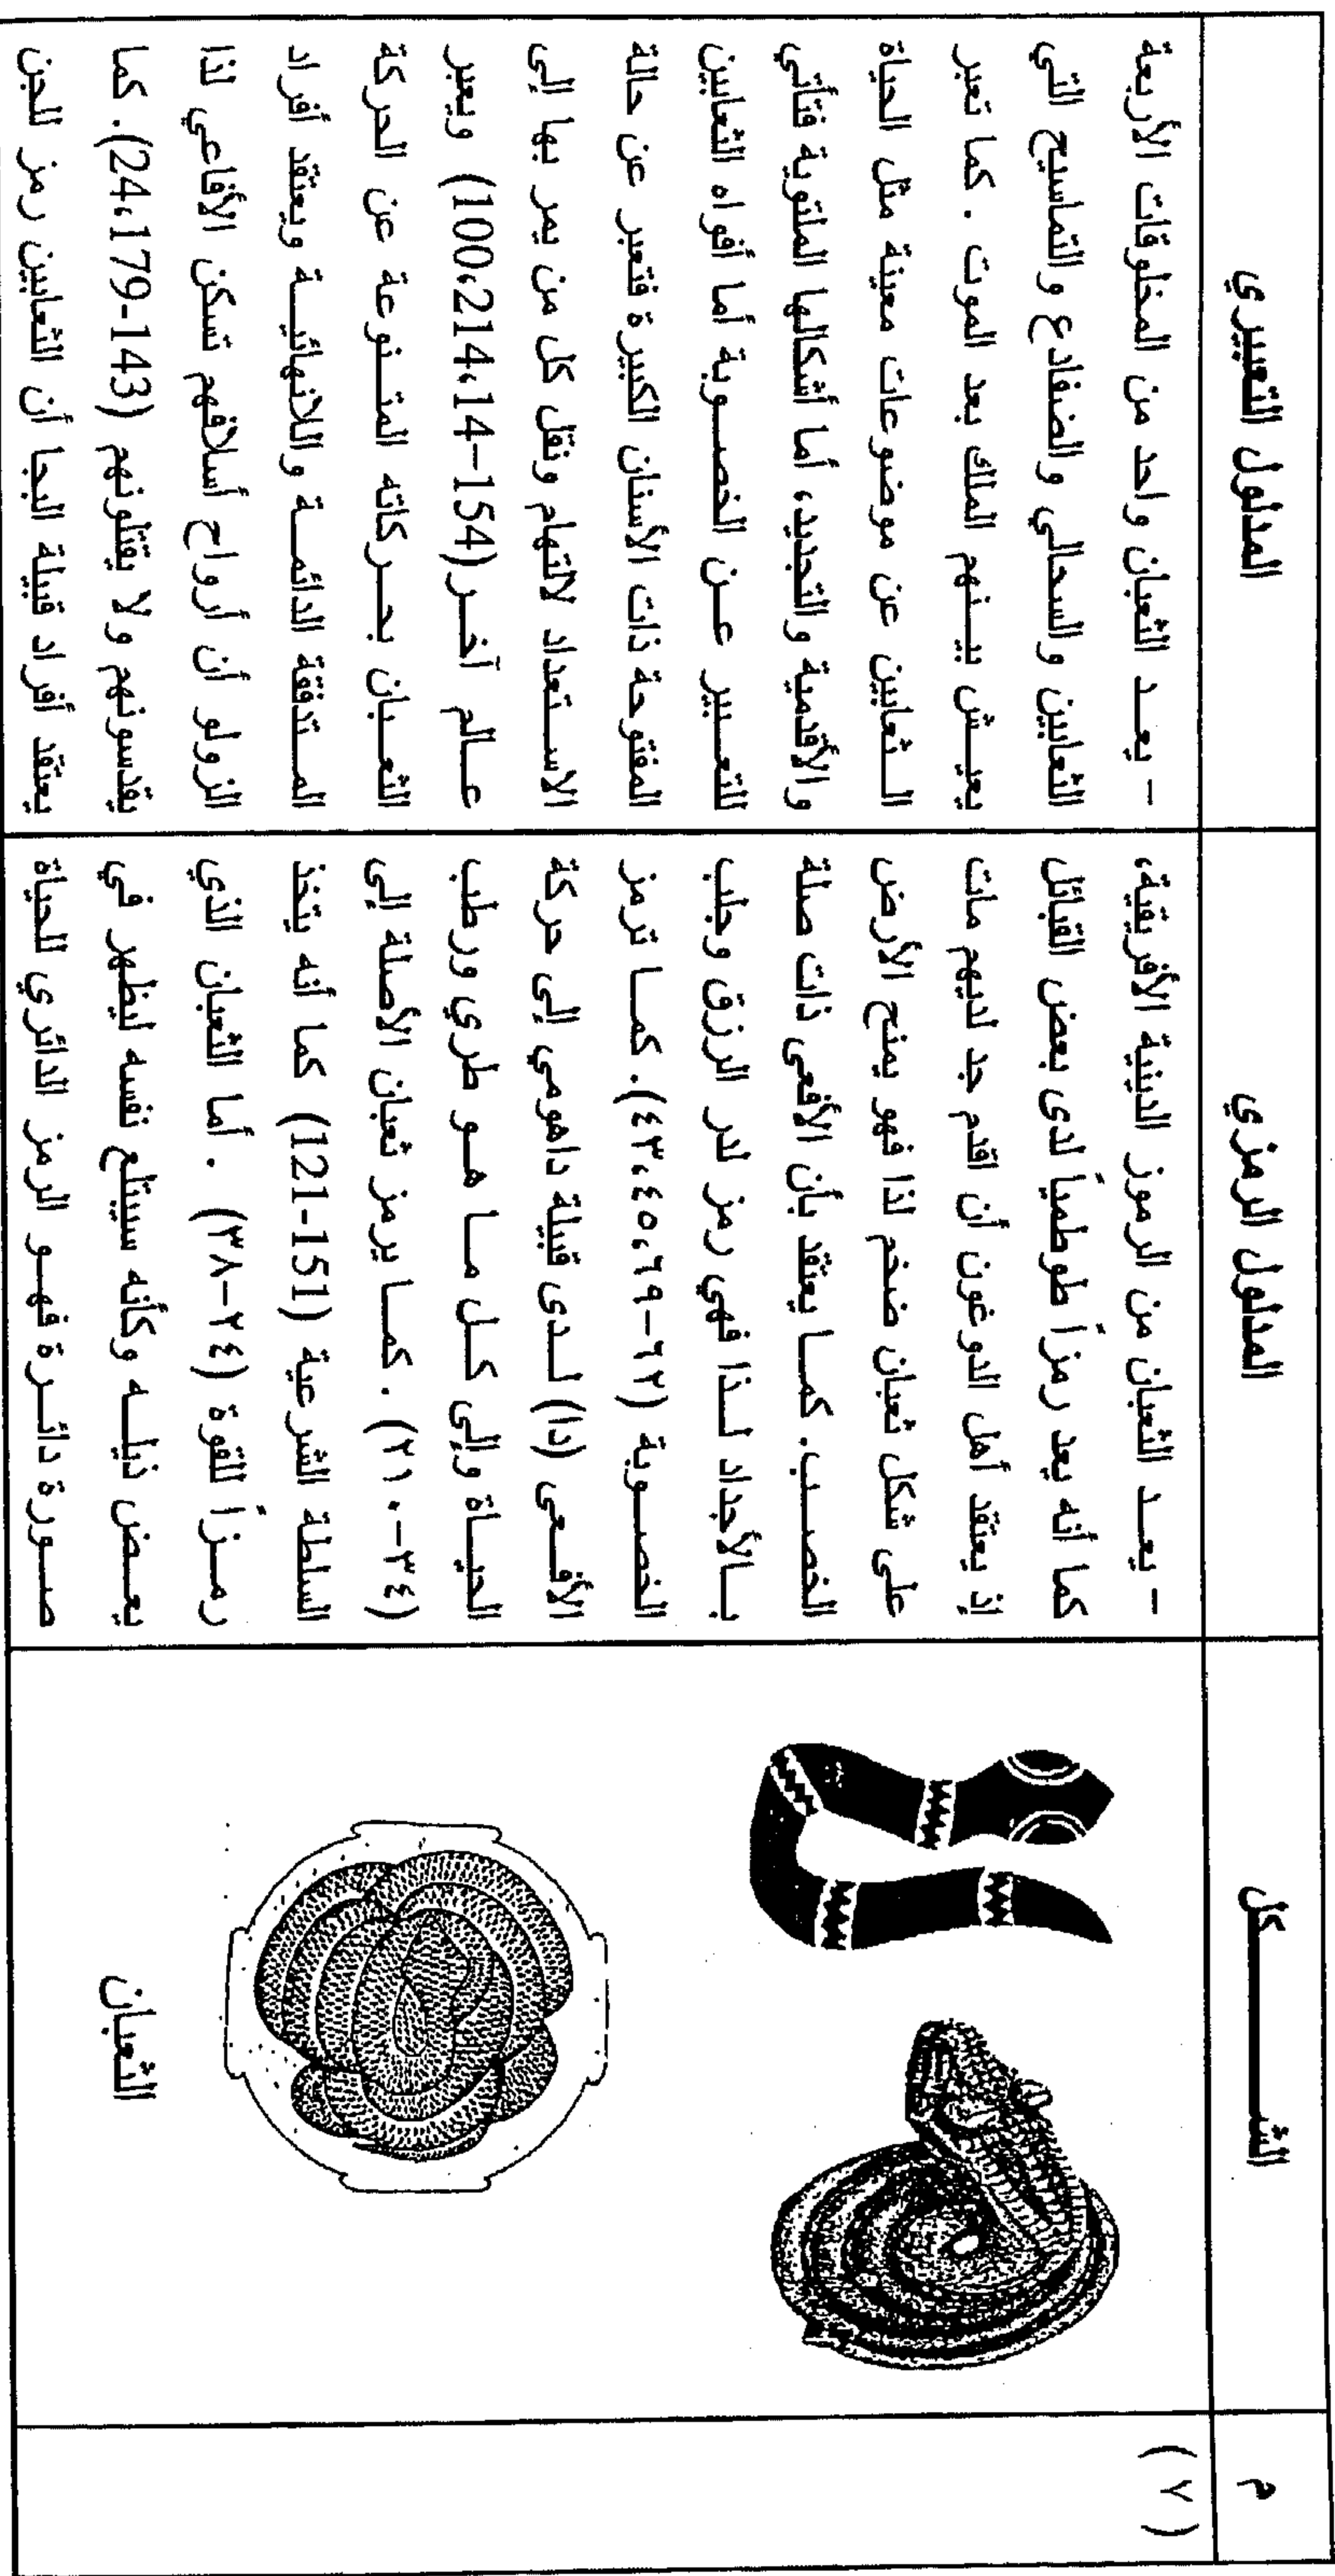 م
الشـــــكل
المدلول الرمزي
المدلول التعبيري
(٧)
الثعبان
- يعـد الثعبان من الرموز الدينية الأفريقية،
كما أنه يعد رمزاً طوطمياً لدى بعض القبائل
إذ يعتقد أهل الدوغون أن اقدم جد لديهم مات
على شكل ثعبان ضخم لذا فهو يمنح الأرض
الخصـب. كمـا يعتقد بأن الأفعى ذات صلة
بـالأجداد لـذا فهي رمز لدر الرزق وجلب
الخصـوبة (٦٢-٤٣،٤٥،٦٩). كمـا ترمز
الأفـعى (دا) لـدى قبيلة داهومي إلى حركة
الحيـاة وإلى كـل مـا هـو طري ورطب
(٣٤-٢١٠). كمـا يرمز ثعبان الأصلة إلى
السلطة الشرعية (151-121) كما أنه يتخذ
رمـزاً للقوة (٢٤-٣٨). أما الثعبان الذي
يعـض ذيلـه وكأنه سيبتلع نفسه ليظهر في
صـورة دائـرة فهـو الرمز الدائري للحياة
- يعـد الثعبان واحد من المخلوقات الأربعة
الثعابين والسحالي والضفادع والتماسيح التي
يعيـش بيـنهم الملك بعد الموت. كما تعبر
الـثعابين عن موضوعات معينة مثل الحياة
والأقدمية والتجديد، أما أشكالها الملتوية فتأتي
للتعـبير عـن الخصـوبة أما أفواه الثعابين
المفتوحة ذات الأسنان الكبيرة فتعبر عن حالة
الاسـتعداد لالتهام ونقل كل من يمر بها إلى
عـالم آخـر(154-100،214،14) ويعبر
الثعـبان بحـركاته المتـنوعة عن الحركة
المـتدفقة الدائمـة واللانهائيـة ويعتقد أفراد
الزولو أن أرواح أسلافهم تسكن الأفاعي لذا
يقدسونهم ولا يقتلونهم (143-24،179). كما
يعتقد أفراد قبيلة البجا أن الثعابين رمز للجن